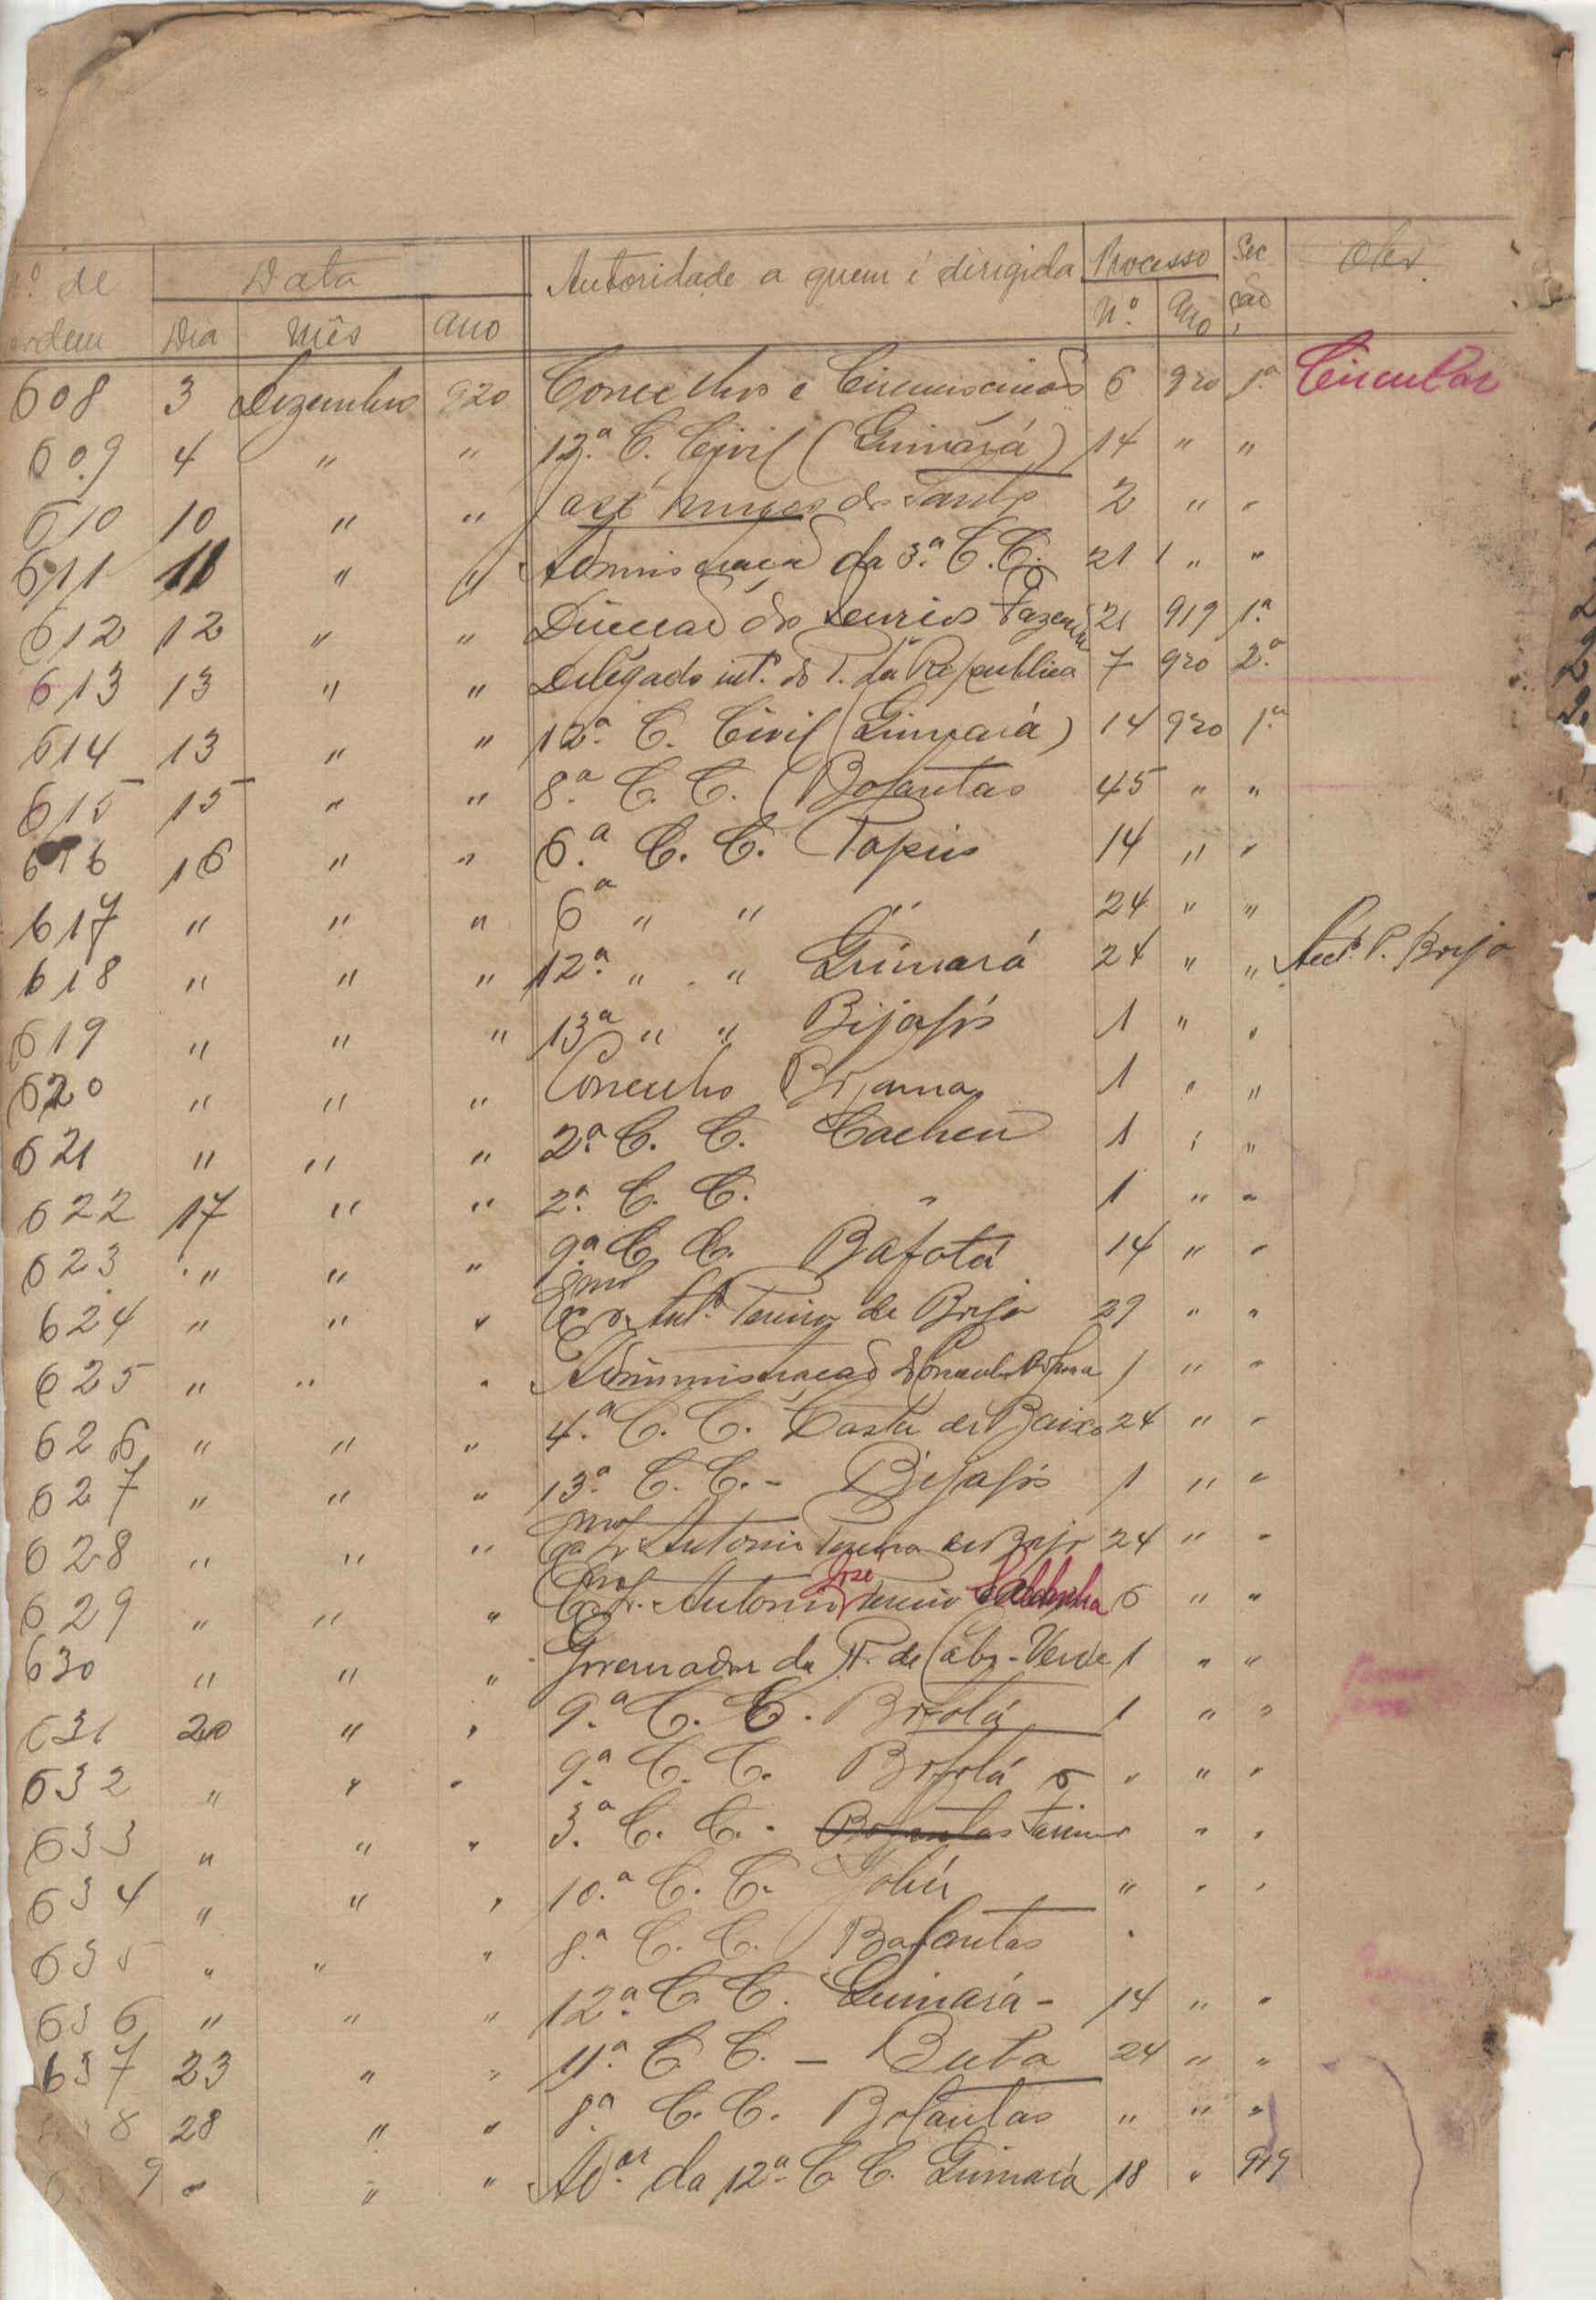 N.º de Data Autoridade a quem é dirigida Processo Sec Obs
ordem Dia Mês Ano N.º Ano ção
608 3 Dezembro 920 Concelhos e Circunscrições 6 920 1.ª Circular
609 4 " " 12.ª C. Civil (Guinará) 14 " "
610 10 " " José Nunes dos Santos 2 " "
611 11 " " Administração da 3.ª C. C. 21 " "
612 12 " " Direcção dos Serviços Fazenda 21 919 1.ª
613 13 " " Delegado int.º do P. da Republica 7 920 2.ª
614 13 " " 12.ª C. Civil (Guinará) 14 920 1.ª
615 15 " " 8.ª C. C. (Bafantas 45 " "
616 16 " " 6.ª C. C. Papeis 14 " "
617 " " " 6.ª " " " 24 " "
618 " " " 12.ª " " Guinará 24 " "
619 " " " 13.ª " " Bijagós 1 " "
620 " " " Concelho Bolama 1 " "
621 " " " 2.ª C. C. Cacheu 1 " "
622 17 " " 2.ª C. C. " 1 " "
623 " " " 9.ª C. C. Bafatá 14 " "
624 " " " Exmo Sr. Ant.º Pereira de Brejo 29 " "
625 " " " Administração do Concelho Bolama 1 " "
626 " " " 4.ª C. C. Costa de Baixo 24 " "
627 " " " 13.ª C. C. - Bijagós 1 " "
628 " " " Exmo Sr. Antonio Pereira de Brejo 24 " "
629 " " " Exmo Sr. Antonio José Pereira Saldanha 6 " "
630 " " " Governador da P. de Cabo-Verde 1 " "
631 20 " " 9.ª C. C. Bafatá 1 " "
632 " " " 9.ª C. C. Bafatá " " "
633 " " " 3.ª C. C. - Bafantas Farim " "
634 " " " 10.ª C. C. " " "
635 " " " 8.ª C. C. Bafantas "
636 " " " 12.ª C. C. Guinará - 14 " "
637 23 " " 11.ª C. C. - Buba 24 " "
8 28 " " 8.ª C. C. Bafantas " " "
9 " " " Ad.or da 12.ª C. C. Guinará 18 " 919